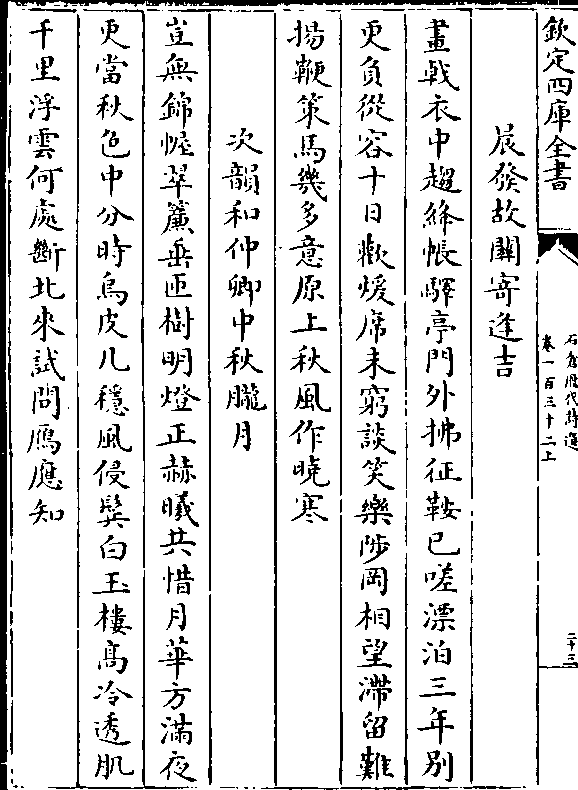 欽定四庫全書
石倉歷代詩選
卷一百三十二上
二十三
辰發故關寄逢吉
畫戟衣中趨絳帳驛亭門外拂征鞍已嗟漂泊三年別
更負從容十日歡煖席未窮談笑樂陟岡相望滯留難
揚鞭策馬幾多意原上秋風作曉寒
次韻和仲卿中秋朧月
豈無錦幄翠簾垂匝樹明燈正赫曦共惜月華方滿夜
更當秋色中分時烏皮几穩風侵髩白玉樓高冷透肌
千里浮雲何處斷北來試問鴈應知